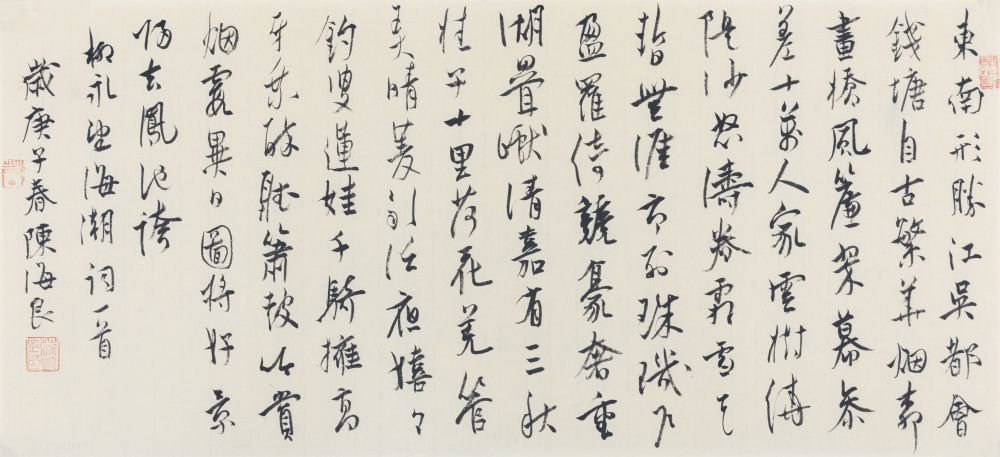 東南形勝江吳都會
錢塘自古繁華烟柳
畫橋風簾翠幕參
差十萬人家雲樹繞
隄沙怒濤卷霜雪天
塹無涯市列珠璣户
盈羅綺競豪奢重
湖疊巘清嘉有三秋
桂子十里荷花羌管
弄晴菱歌泛夜嬉々
釣叟蓮娃千騎擁高
牙乘醉聽簫鼓吟賞
烟霞異日圖將好景
歸去鳳池誇
柳永望海潮詞一首
歲庚子春陳海良